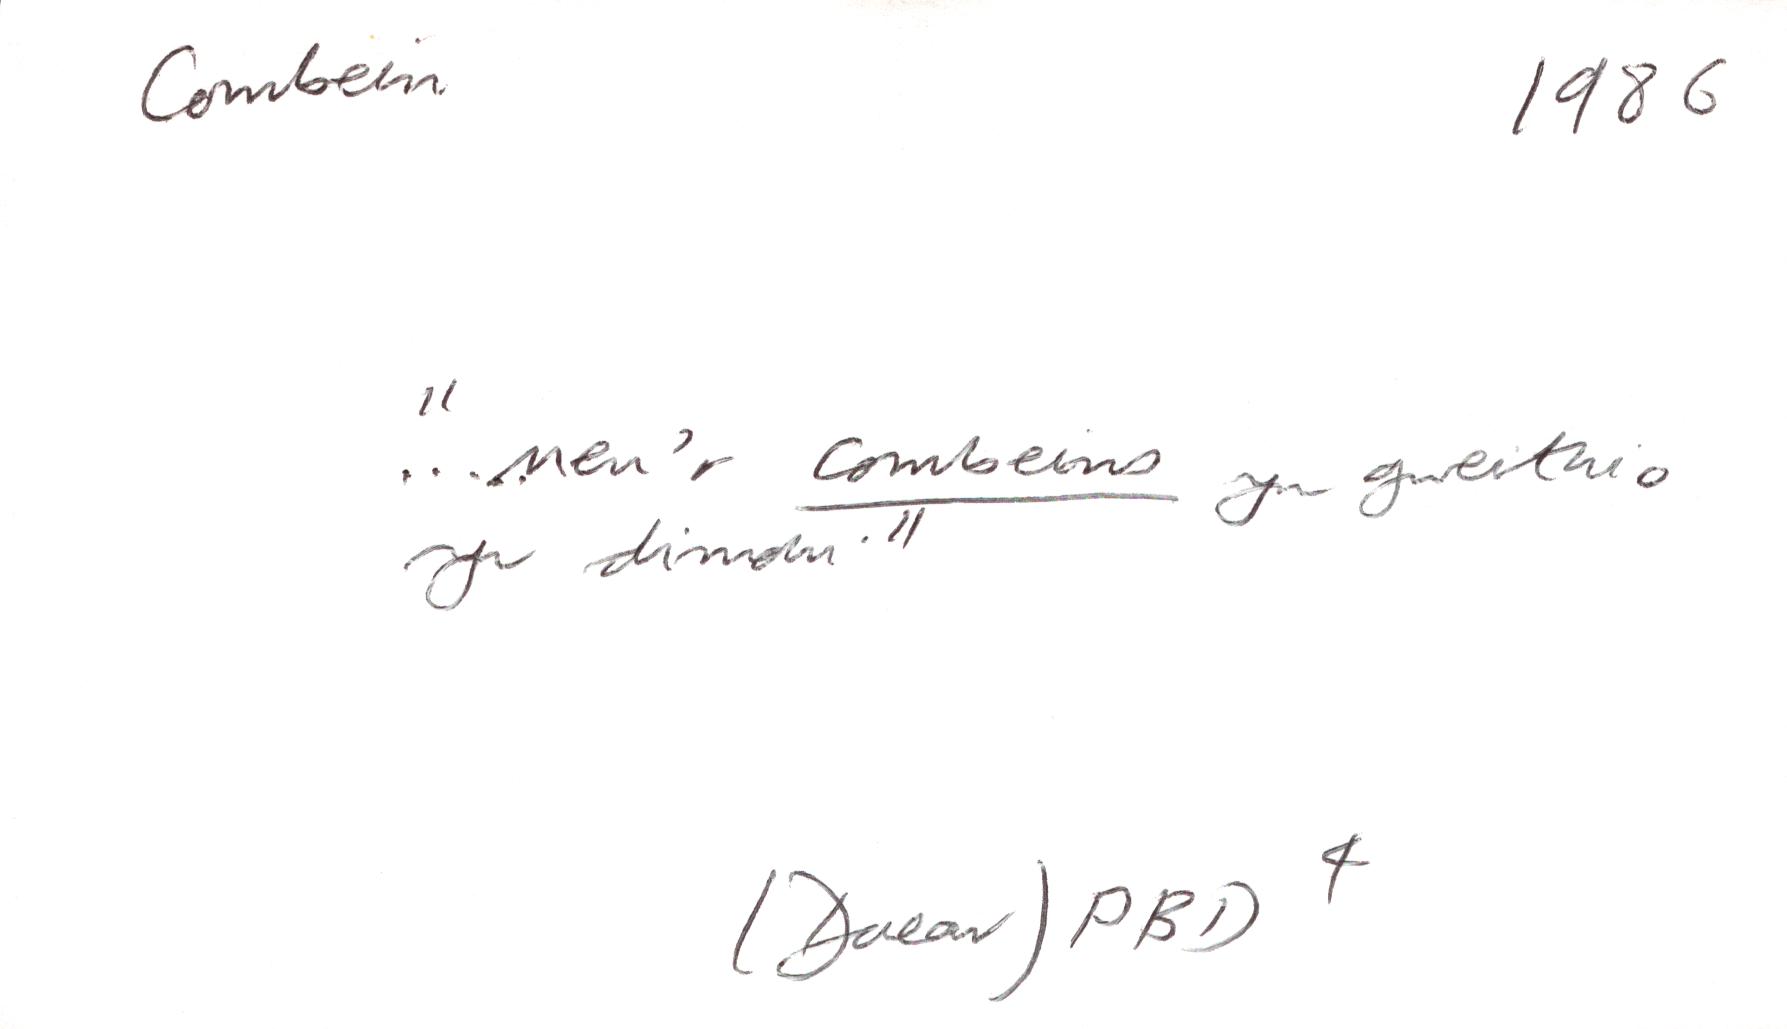 Combein 1986
"...Men'r combeins yn gweithio
yn dinon."
(Daear) PBD 4